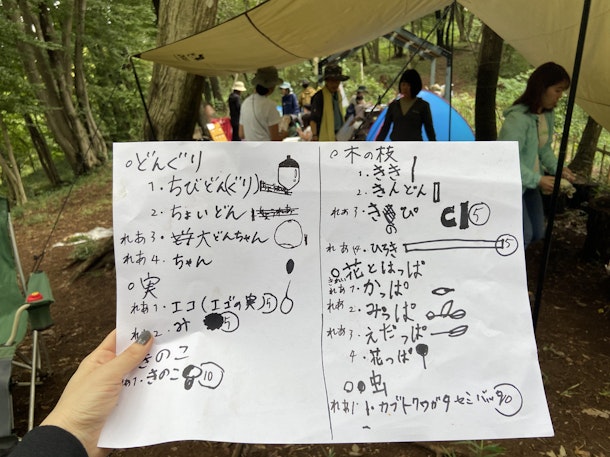 ○どんぐり
1.ちびどん(ぐり)
2.ちょいどん
れあ3.大どんちゃん
れあ4.ちゃん
○実
れあ1.エコ(エゴの実)⑤
れあ2.み ⑤
きのこ
れあ1.きのこ ⑩
○木の枝
1.きき
2.きんどん
れあ3.きのぴ ⑤
れあ4.ひろき ⑮
○花とはっぱ
きれい
れあ1.かっぱ
れあ2.みっぱ
れあ3.えだっぱ
4.花っぱ
○虫
れあ1.カブトクワガタセミバッタ